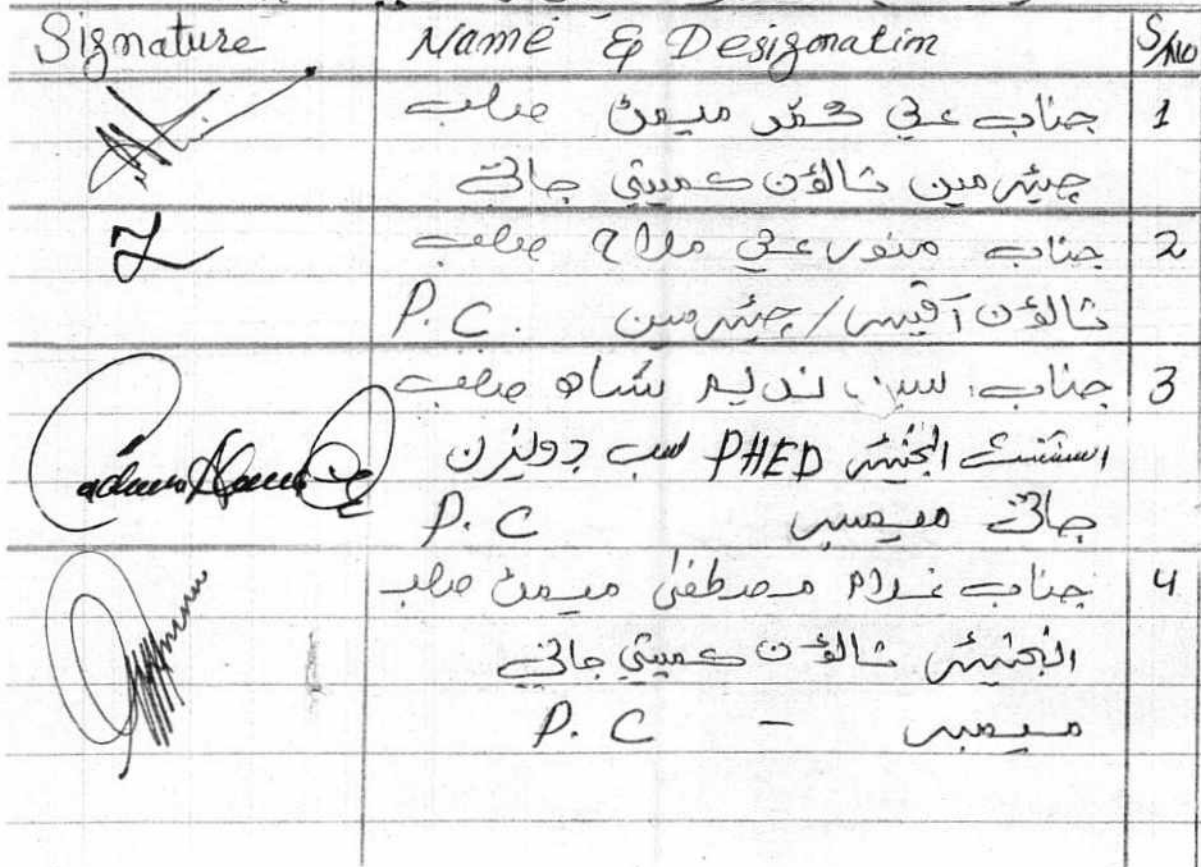 S/No Name & Designation Signature
1 جناب علي محمد ميمڻ صاحب
چيئرمين ٽائون ڪميٽي جاتي
2 جناب منور علي ملاح صاحب
ٽائون آفيسر/چيئرمين P.C.
3 جناب سيد نديم شاهه صاحب
اسسٽنٽ انجنيئر PHED سب ڊويزن
جاتي ميمبر P.C
4 جناب غلام مصطفيٰ ميمڻ صاحب
انجنيئر ٽائون ڪميٽي جاتي
ميمبر - P.C